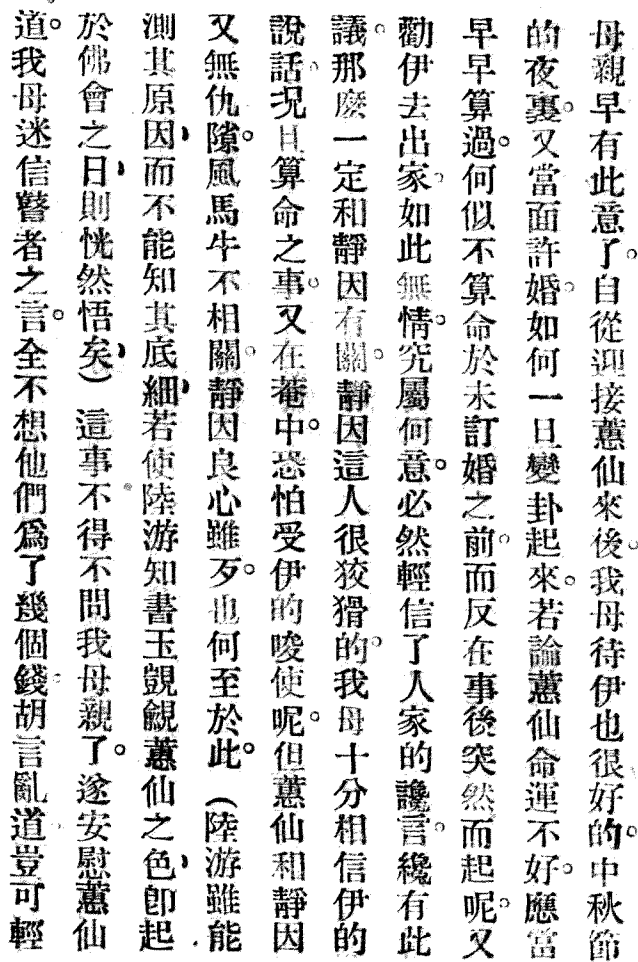 母親早有此意了。自從迎接蕙仙來後。我母待伊也很好的。中秋節
的夜裏。又當面許婚。如何一旦變卦起來。若論蕙仙命運不好。應當
早早算過。何似不算命於未訂婚之前。而反在事後突然而起呢。又
勸伊去出家。如此無情。究屬何意。必然輕信了人家的讒言。纔有此
議。那麼一定和靜因有關。靜因這人很狡猾的。我母十分相信伊的
說話。况且算命之事。又在菴中。恐怕受伊的唆使呢。但蕙仙和靜因
又無仇隙。風馬牛不相關。靜因良心雖歹。也何至於此。（陸游雖能
測其原因，而不能知其底細，若使陸游知書玉覬覦蕙仙之色，卽起
於佛會之日，則恍然悟矣，）這事不得不問我母親了。遂安慰蕙仙
道。我母迷信瞽者之言。全不想他們爲了幾個錢。胡言亂道。豈可輕